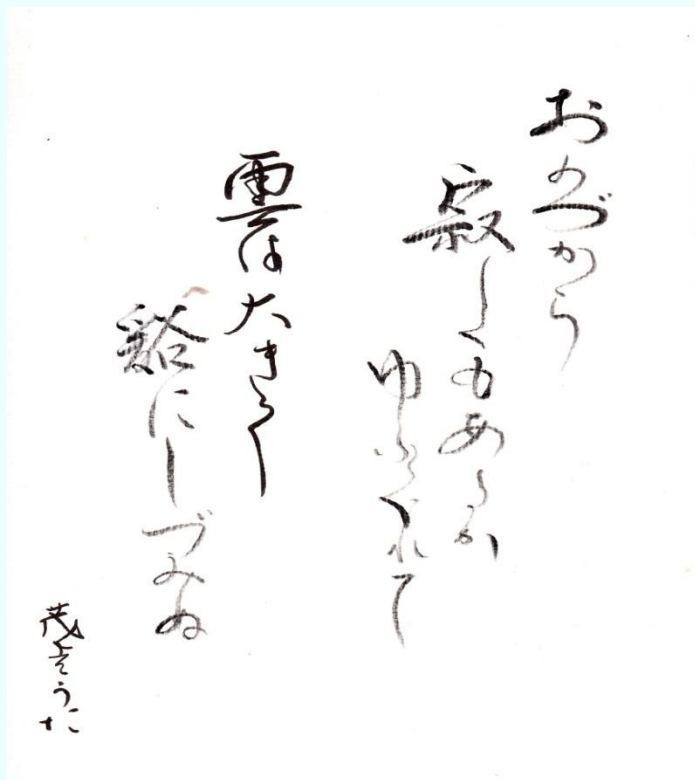 おのづから
寂しくもあるか
ゆふぐれて
雲は大きく
谿にしづみぬ
茂吉うた